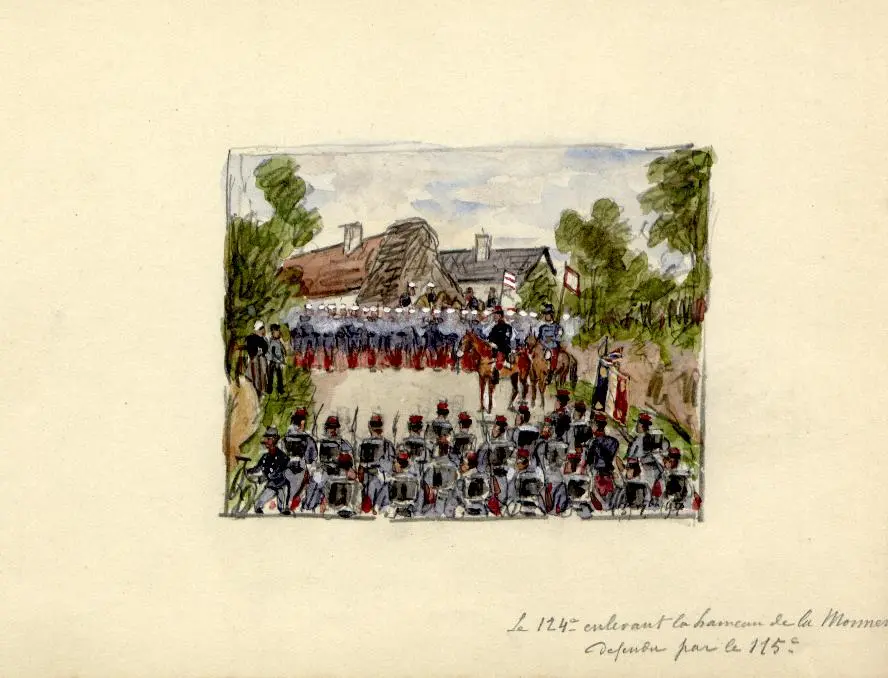 Le 124e enlevant le hameau de la
défendu par le 115e